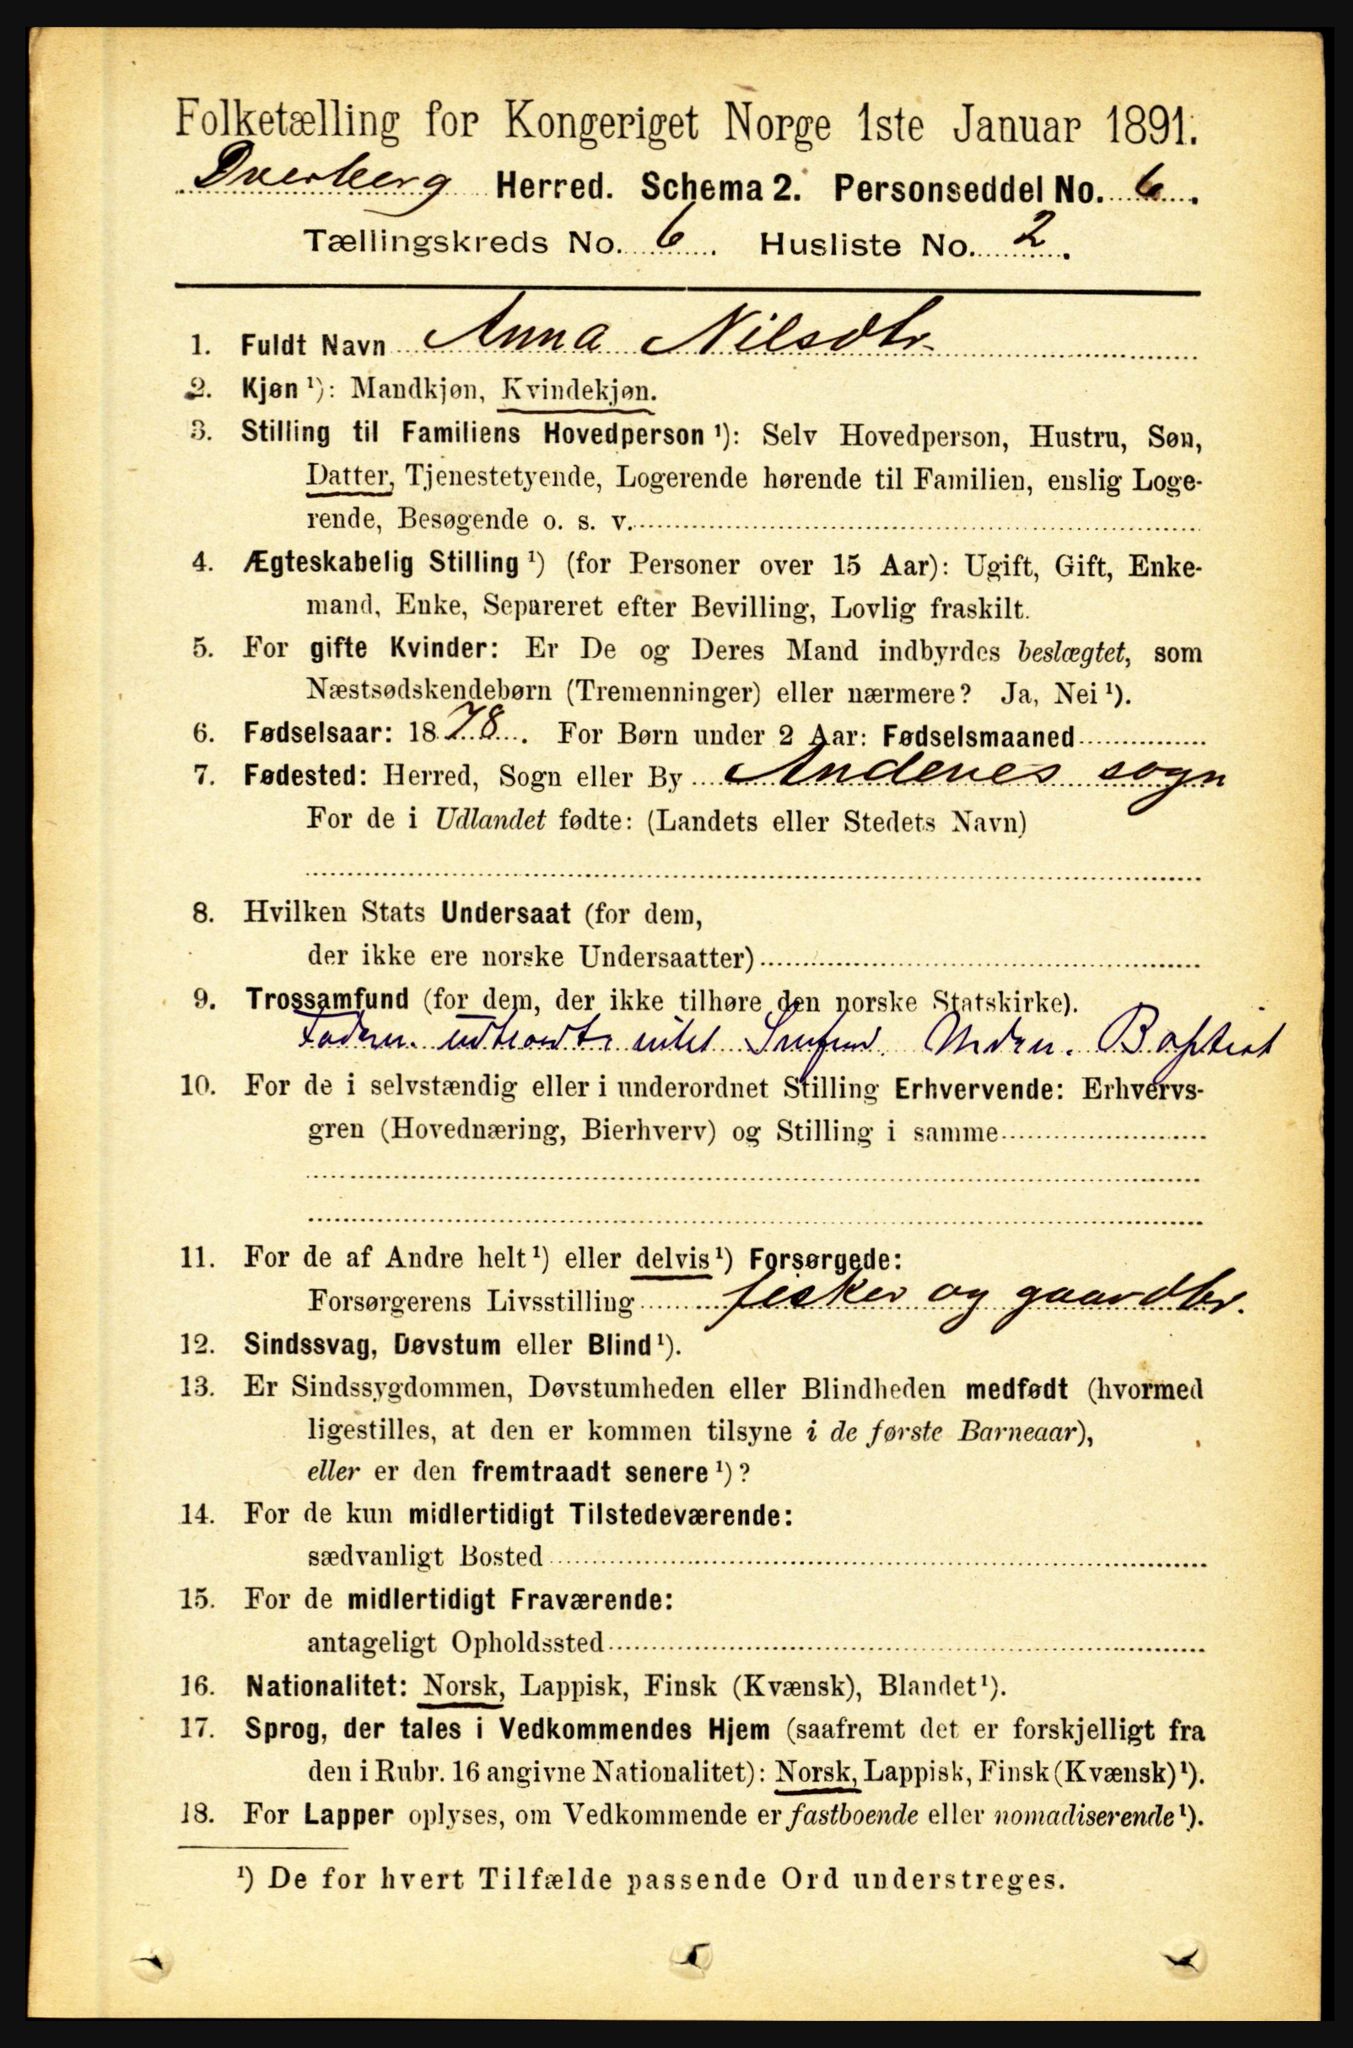 Folketælling for Kongeriget Norge 1ste Januar 1891.
Dverberg Herred. Schema 2. Personseddel No. 6.
Tællingskreds No. 6. Husliste No. 2.
1. Fuldt Navn Anna Nilsdtr
2. Kjøn ¹): Mandkjøn, Kvindekjøn.
3. Stilling til Familiens Hovedperson ¹): Selv Hovedperson, Hustru, Søn,
Datter, Tjenestetyende, Logerende hørende til Familien, enslig Loge-
rende, Besøgende o. s. v.
4. Ægteskabelig Stilling ¹) (for Personer over 15 Aar): Ugift, Gift, Enke-
mand, Enke, Separeret efter Bevilling, Lovlig fraskilt.
5. For gifte Kvinder: Er De og Deres Mand indbyrdes beslægtet, som
Næstsødskendebørn (Tremenninger) eller nærmere? Ja, Nei ¹).
6. Fødselsaar: 1878. For Børn under 2 Aar: Fødselsmaaned
7. Fødested: Herred, Sogn eller By Andenes sogn
For de i Udlandet fødte: (Landets eller Stedets Navn)
8. Hvilken Stats Undersaat (for dem,
der ikke ere norske Undersaatter)
9. Trossamfund (for dem, der ikke tilhøre den norske Statskirke).
Faderen udtraadt intet Smfund. Moderen. Baptist
10. For de i selvstændig eller i underordnet Stilling Erhvervende: Erhvervs-
gren (Hovednæring, Bierhverv) og Stilling i samme
11. For de af Andre helt ¹) eller delvis ¹) Forsørgede:
Forsørgerens Livsstilling fisker og gaardbr.
12. Sindssvag, Døvstum eller Blind ¹).
13. Er Sindssygdommen, Døvstumheden eller Blindheden medfødt (hvormed
ligestilles, at den er kommen tilsyne i de første Barneaar),
eller er den fremtraadt senere ¹)?
14. For de kun midlertidigt Tilstedeværende:
sædvanligt Bosted
15. For de midlertidigt Fraværende:
antageligt Opholdssted
16. Nationalitet: Norsk, Lappisk, Finsk (Kvænsk), Blandet ¹).
17. Sprog, der tales i Vedkommendes Hjem (saafremt det er forskjelligt fra
den i Rubr. 16 angivne Nationalitet): Norsk, Lappisk, Finsk (Kvænsk) ¹).
18. For Lapper oplyses, om Vedkommende er fastboende eller nomadiserende ¹).
¹) De for hvert Tilfælde passende Ord understreges.